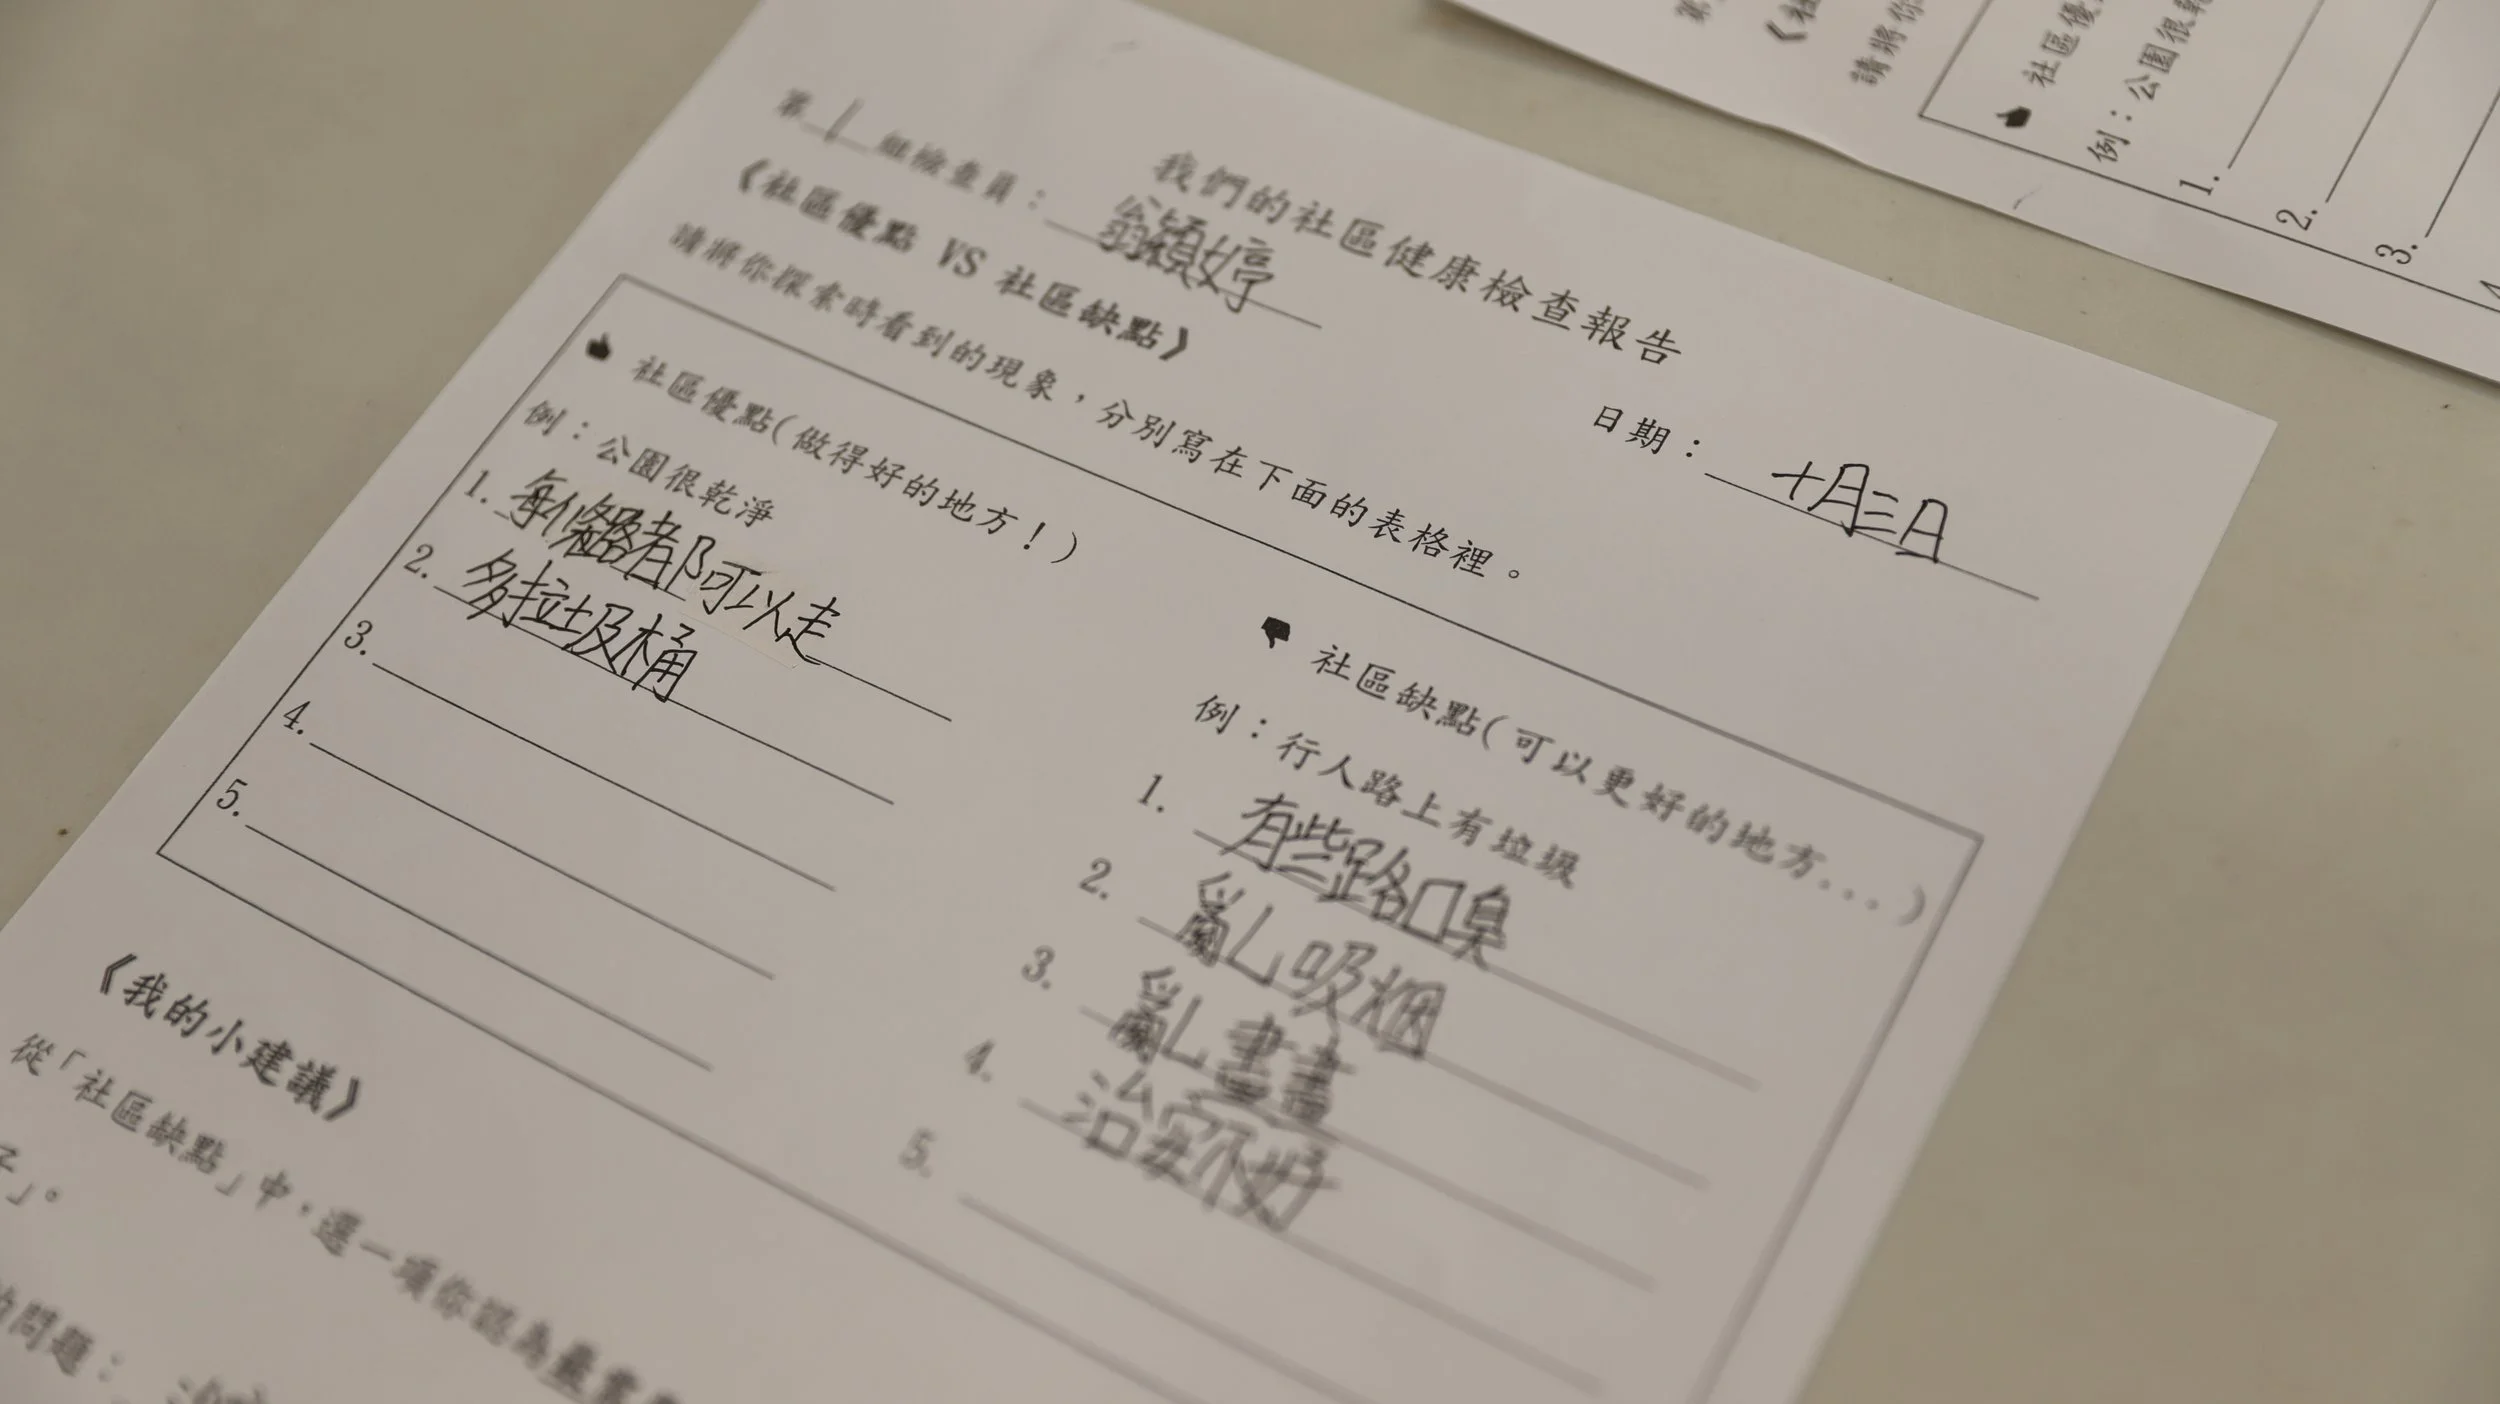 我們的社區健康檢查報告
第1組檢查員：翁穎婷
日期：十月三日
《社區優點 VS 社區缺點》
請將你探索時看到的現象，分別寫在下面的表格裡。
社區優點(做得好的地方！)
例：公園很乾淨
1. 每條路都可以走
2. 多垃圾桶
3.
4.
5.
社區缺點(可以更好的地方...)
例：行人路上有垃圾
1. 有些路口臭
2. 亂吸烟
3. 亂畫畫
4. 治安不好
5.
《我的小建議》
從「社區缺點」中，選一項你認為最需
子」。
問題：
社區優
例：公園很乾
1.
2.
3.